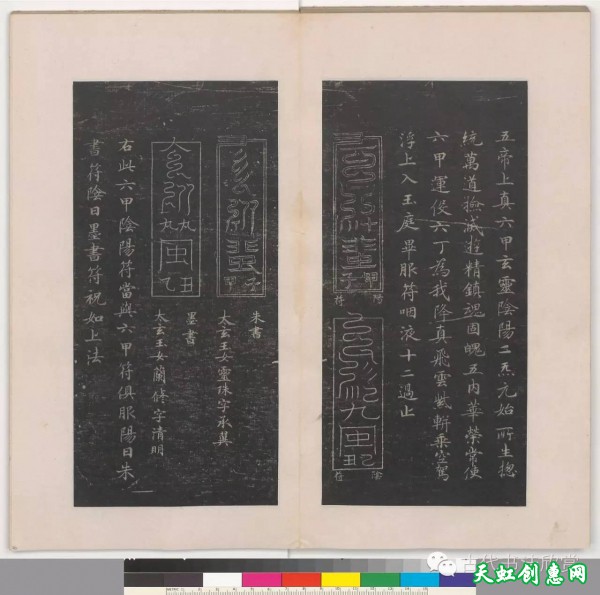 五帝上真六甲玄靈陰陽二炁元始所生揔
統萬道撫滅遊精鎮魂固魄五內華榮常使
六甲運役六丁為我降真飛雲紫軿乘空駕
浮上入玉庭畢服符咽液十二過止
符
符
朱書
太玄玉女靈珠字承翼
墨書
太玄玉女蘭修字清明
右此六甲陰陽符當與六甲符俱服陽日朱
書符陰日墨書符祝如上法
古代书法欣赏
天虹创惠网